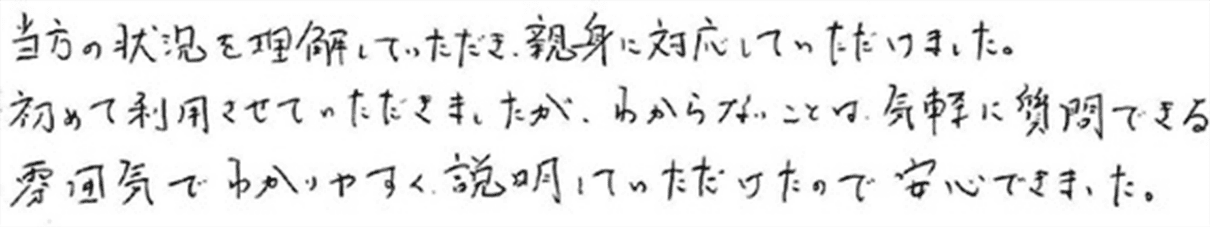 当方の状況を理解していただき、親身に対応していただけました。
初めて利用させていただきましたが、わからないことは、気軽に質問できる
雰囲気でわかりやすく説明していただけたので安心できました。